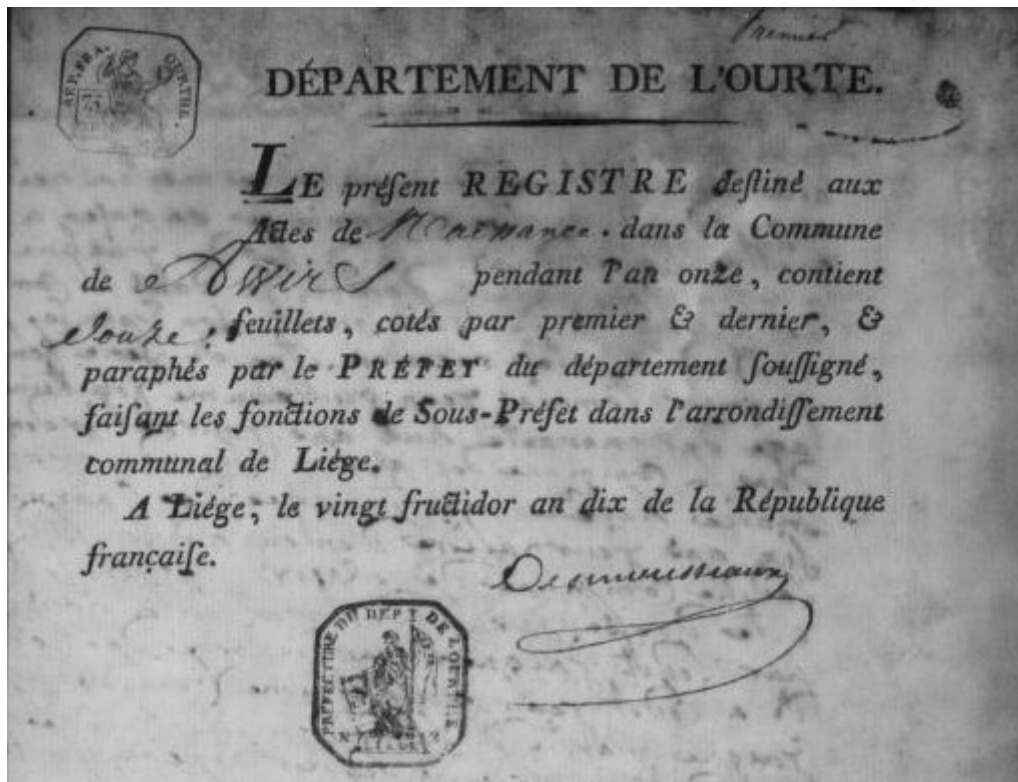 Premier
REP. FRA. OURTHE.
DÉPARTEMENT DE L'OURTE.
LE préſent REGISTRE deſtiné aux
Actes de Naissance. dans la Commune
de Awirs pendant l'an onze, contient
douze. feuillets, cotés par premier & dernier, &
paraphés par le PRÉFET du département ſouſſigné,
faiſant les fonctions de Sous-Préfet dans l'arrondiſſement
communal de Liége.
A Liége, le vingt fructidor an dix de la République
françaiſe.
Desmousseaux
PREFECTURE DU DEPT DE L'OURTHE